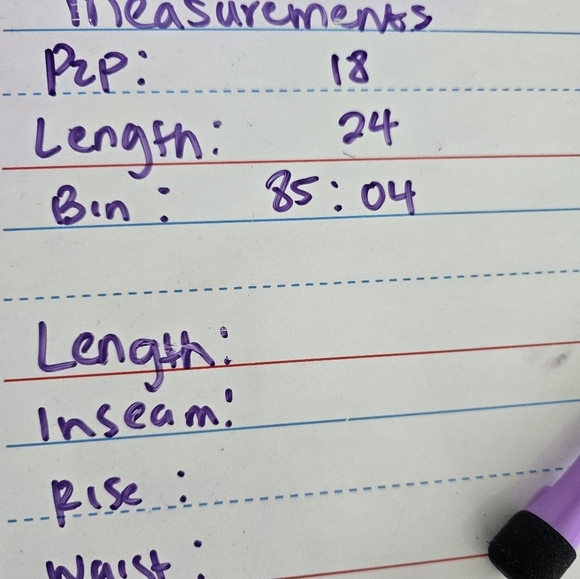 Measurements
P2P: 18
Length: 24
Bin: 85:04
Length:
Inseam:
Rise:
Waist: